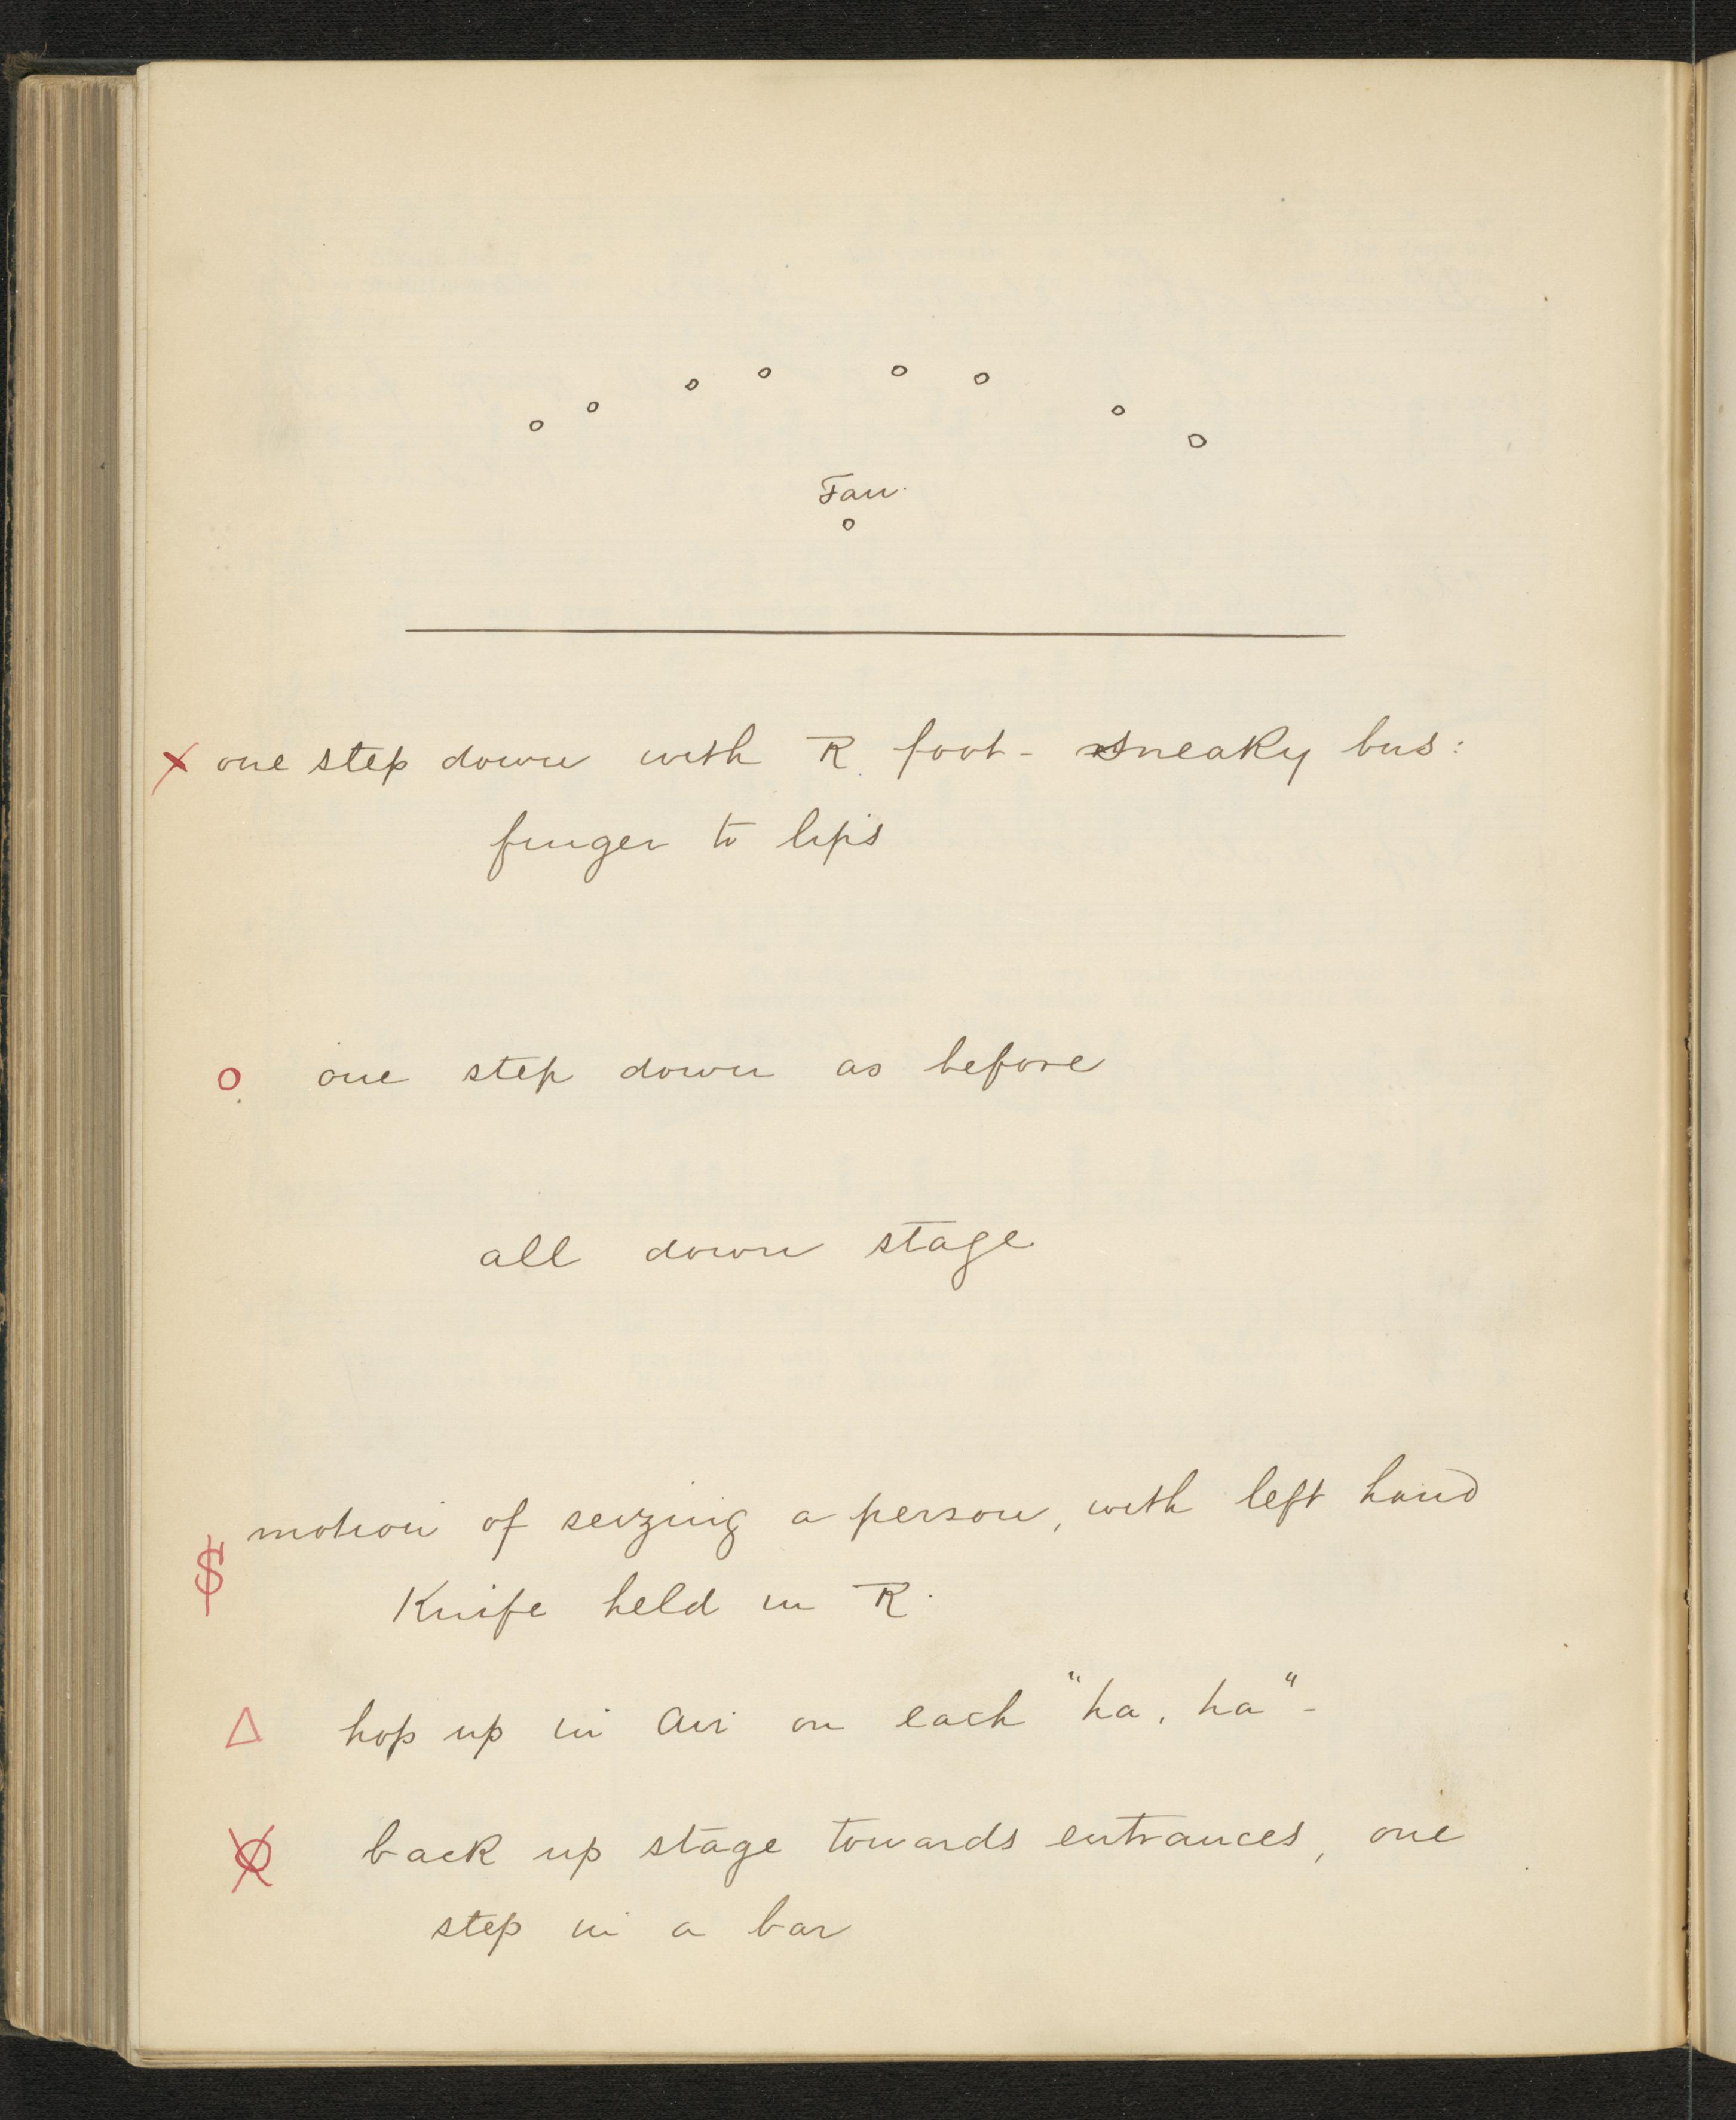 Fan.
x one step down with R foot - sneaky bus:
finger to lips
o one step down as before
all down stage
motion of seizing a person, with left hand
$ Knife held in R.
Δ hop up in air on each "ha, ha" -
back up stage towards entrances, one
step in a bar